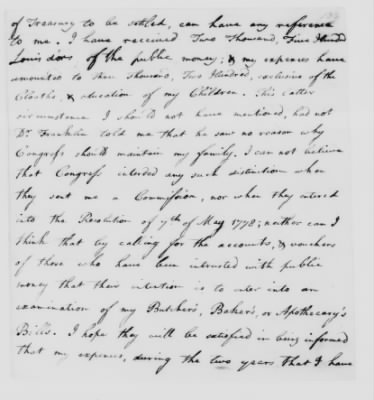 of Treasury to be settled, can have any reference
to me. I have received Two Thousand, Five Hund
Louis d'ors, of the public money; & my expences have
amounted to three Thousand, Two Hundred, exclusive of the
Cloaths, & education of my Children. This latter
circumstance I should not have mentioned, had not
Dr. Franklin told me that he saw no reason why
Congress should maintain my family. I can not believe
that Congress intended any such distinction when
they sent me a Commission, nor when they entered
into the Resolution of 7th of May 1778; neither can I
think that by calling for the accounts, & vouchers
of those who have been intrusted with public
money that their intention is to enter into an
examination of my Butcher's, Baker's, or Apothecary's
Bills. I hope they will be satisfied in being informed
that my expences, during the two years that I have